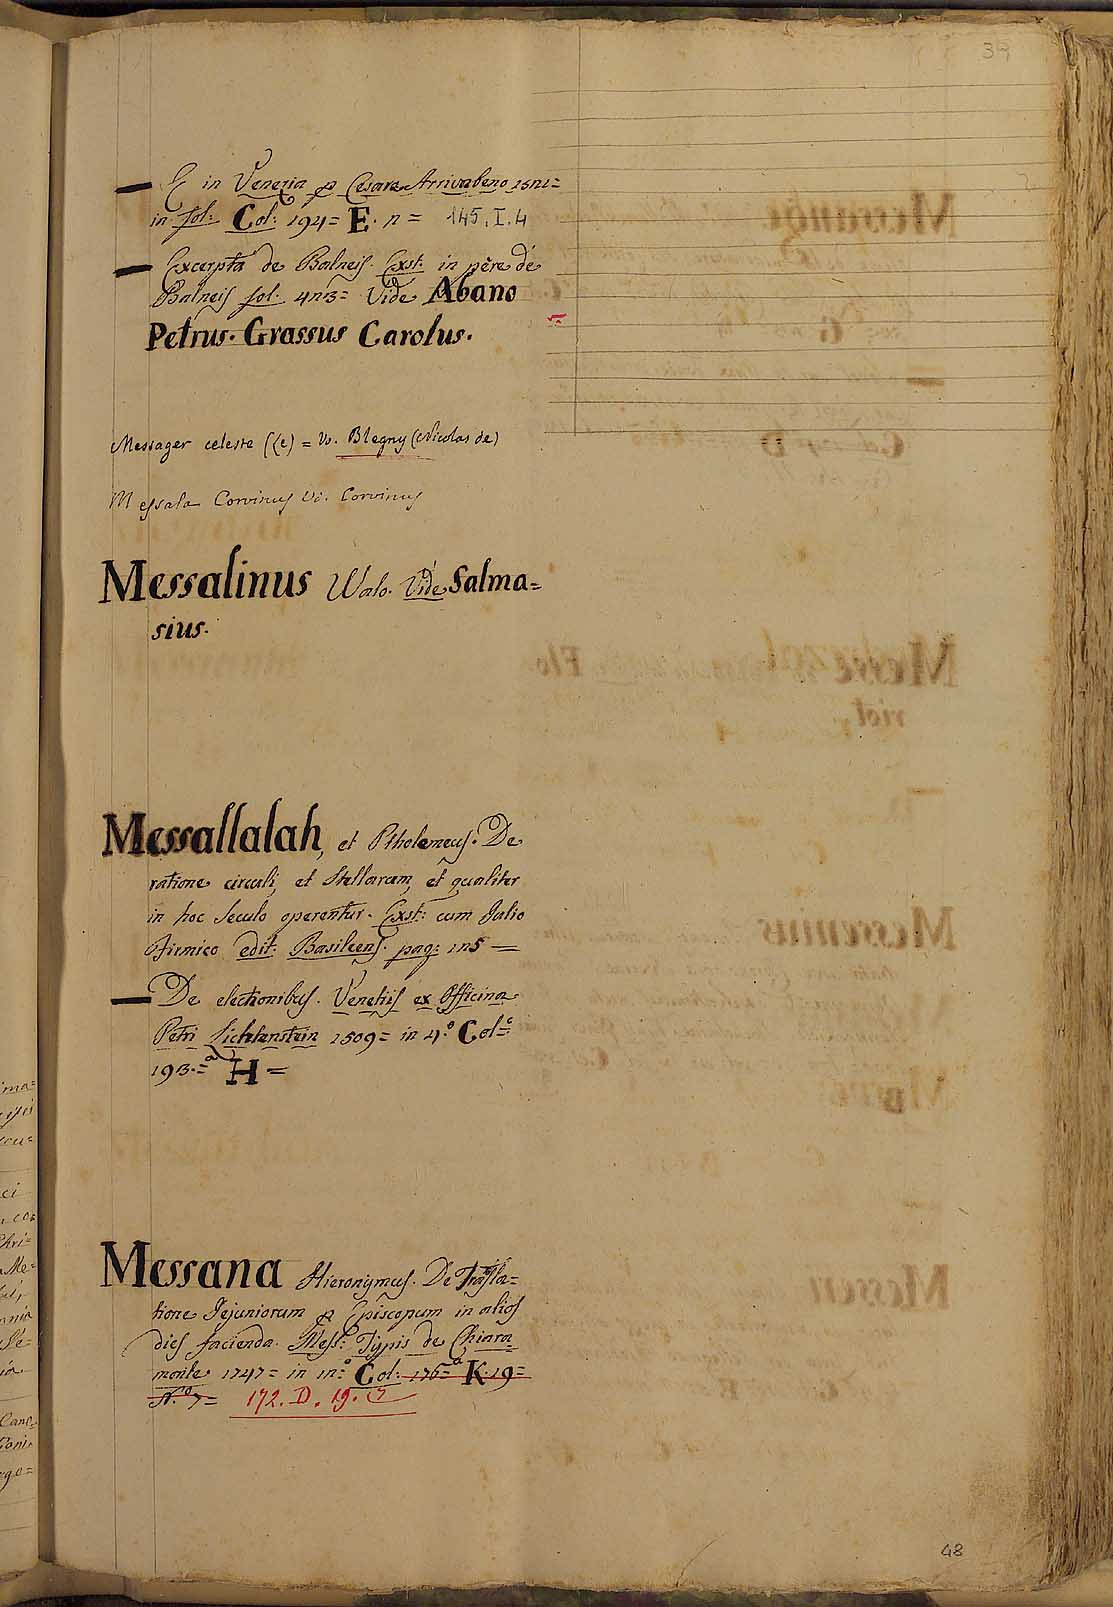 39
— E in Venezia p Cesare Arrivabeno 1521=
in fol: Col: 194= E. n= 145. I. 4
— Excerpta de Balneis. Ext: in pẽre de
Balneis fol. 223= Vide Abano
Petrus. Grassus Carolus.
Messager celeste (Le) = v. Blegny (Nicolas de)
Messala Corvinus Vi. Corvinus
Messalinus Walo. Vide Salma=
sius.
Messallalah, et Ptholemeus. De
ratione circuli, et Stellarum, et qualiter
in hoc seculo operentur. Ext: cum Julio
Firmico edit: Basileens. pag: 115 —
— De electionibus. Venetiis ex Officina
Petri Lichtenstein 1509= in 4.º Col=º
193.=ª H =
Messana Hieronymus. De Trasla=
tione Jejuniorum p Episcopum in alios
dies facienda. Mess: Typis de Chiara=
monte 1747= in 12=º Col. 176=ª K. 19=
N.º 7= 172. D. 19. 7
48